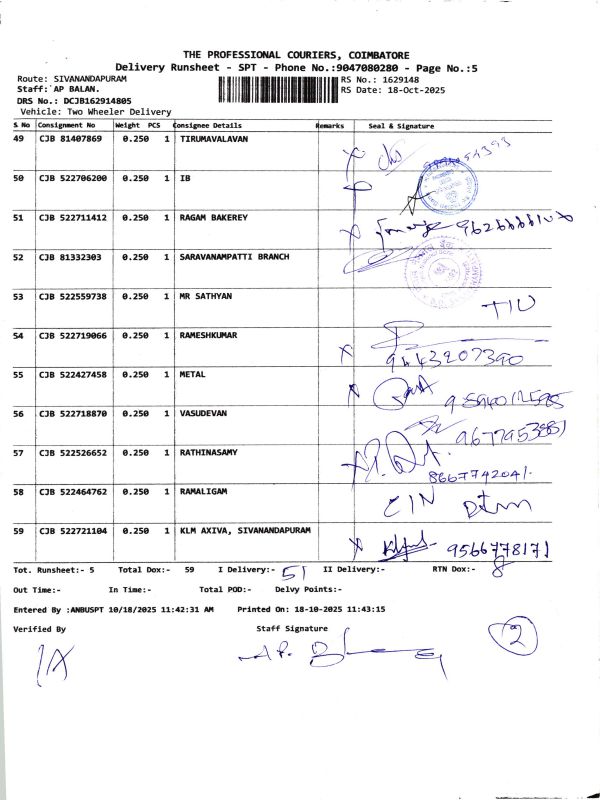 THE PROFESSIONAL COURIERS, COIMBATORE
Delivery Runsheet - SPT - Phone No.:9047080280 - Page No.:5
Route: SIVANANDAPURAM RS No.: 1629148
Staff: AP BALAN. RS Date: 18-Oct-2025
DRS No.: DCJB162914805
Vehicle: Two Wheeler Delivery
S No Consignment No Weight PCS Consignee Details Remarks Seal & Signature
49 CJB 81407869 0.250 1 TIRUMAVALAVAN
50 CJB 522706200 0.250 1 IB
51 CJB 522711412 0.250 1 RAGAM BAKEREY
52 CJB 81332303 0.250 1 SARAVANAMPATTI BRANCH
53 CJB 522559738 0.250 1 MR SATHYAN
54 CJB 522719066 0.250 1 RAMESHKUMAR 9443207390
55 CJB 522427458 0.250 1 METAL
56 CJB 522718870 0.250 1 VASUDEVAN
57 CJB 522526652 0.250 1 RATHINASAMY 8667742041.
58 CJB 522464762 0.250 1 RAMALIGAM
59 CJB 522721104 0.250 1 KLM AXIVA, SIVANANDAPURAM 9566778171
Tot. Runsheet:- 5 Total Dox:- 59 I Delivery:- 51 II Delivery:- RTN Dox:- 8
Out Time:- In Time:- Total POD:- Delvy Points:-
Entered By :ANBUSPT 10/18/2025 11:42:31 AM Printed On: 18-10-2025 11:43:15
Verified By Staff Signature
2